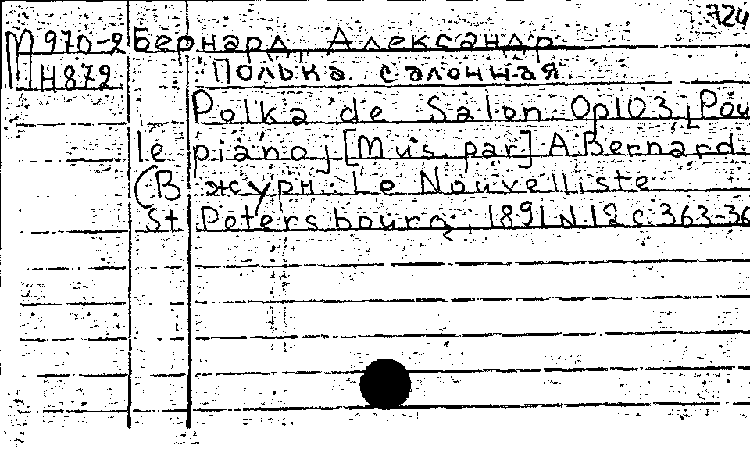 724
М970-2 Бернард, Александр.
Н872 Полька салонная.
Polka de Salon. Op 103 [Pou
le piano] [Mus. par] A. Bernard.
(В журн. Le Nouvelliste
St Petersbourg, 1891 N. 12 с. 363-36